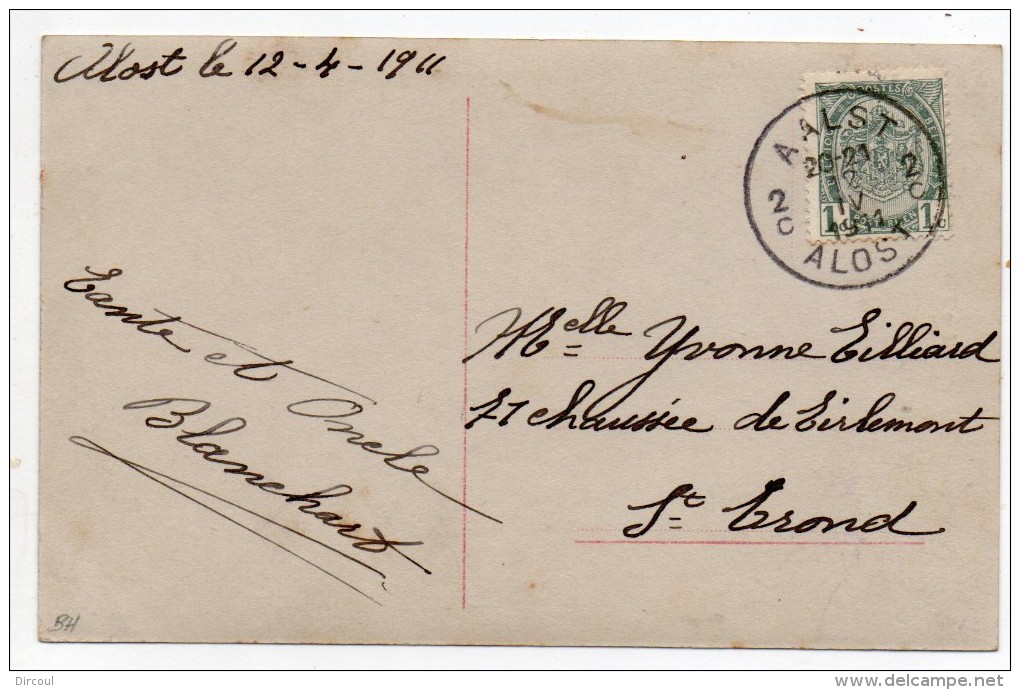 Alost le 12-4-1911
POSTES
AALST
20-21
2C
2C
IV
1911
1c
1c
ALOST
Tante et Oncle
Blanchart
Melle Yvonne Tilliard
71 chaussée de Tirlemont
St Trond
BH
Dircoul
delcampe.net